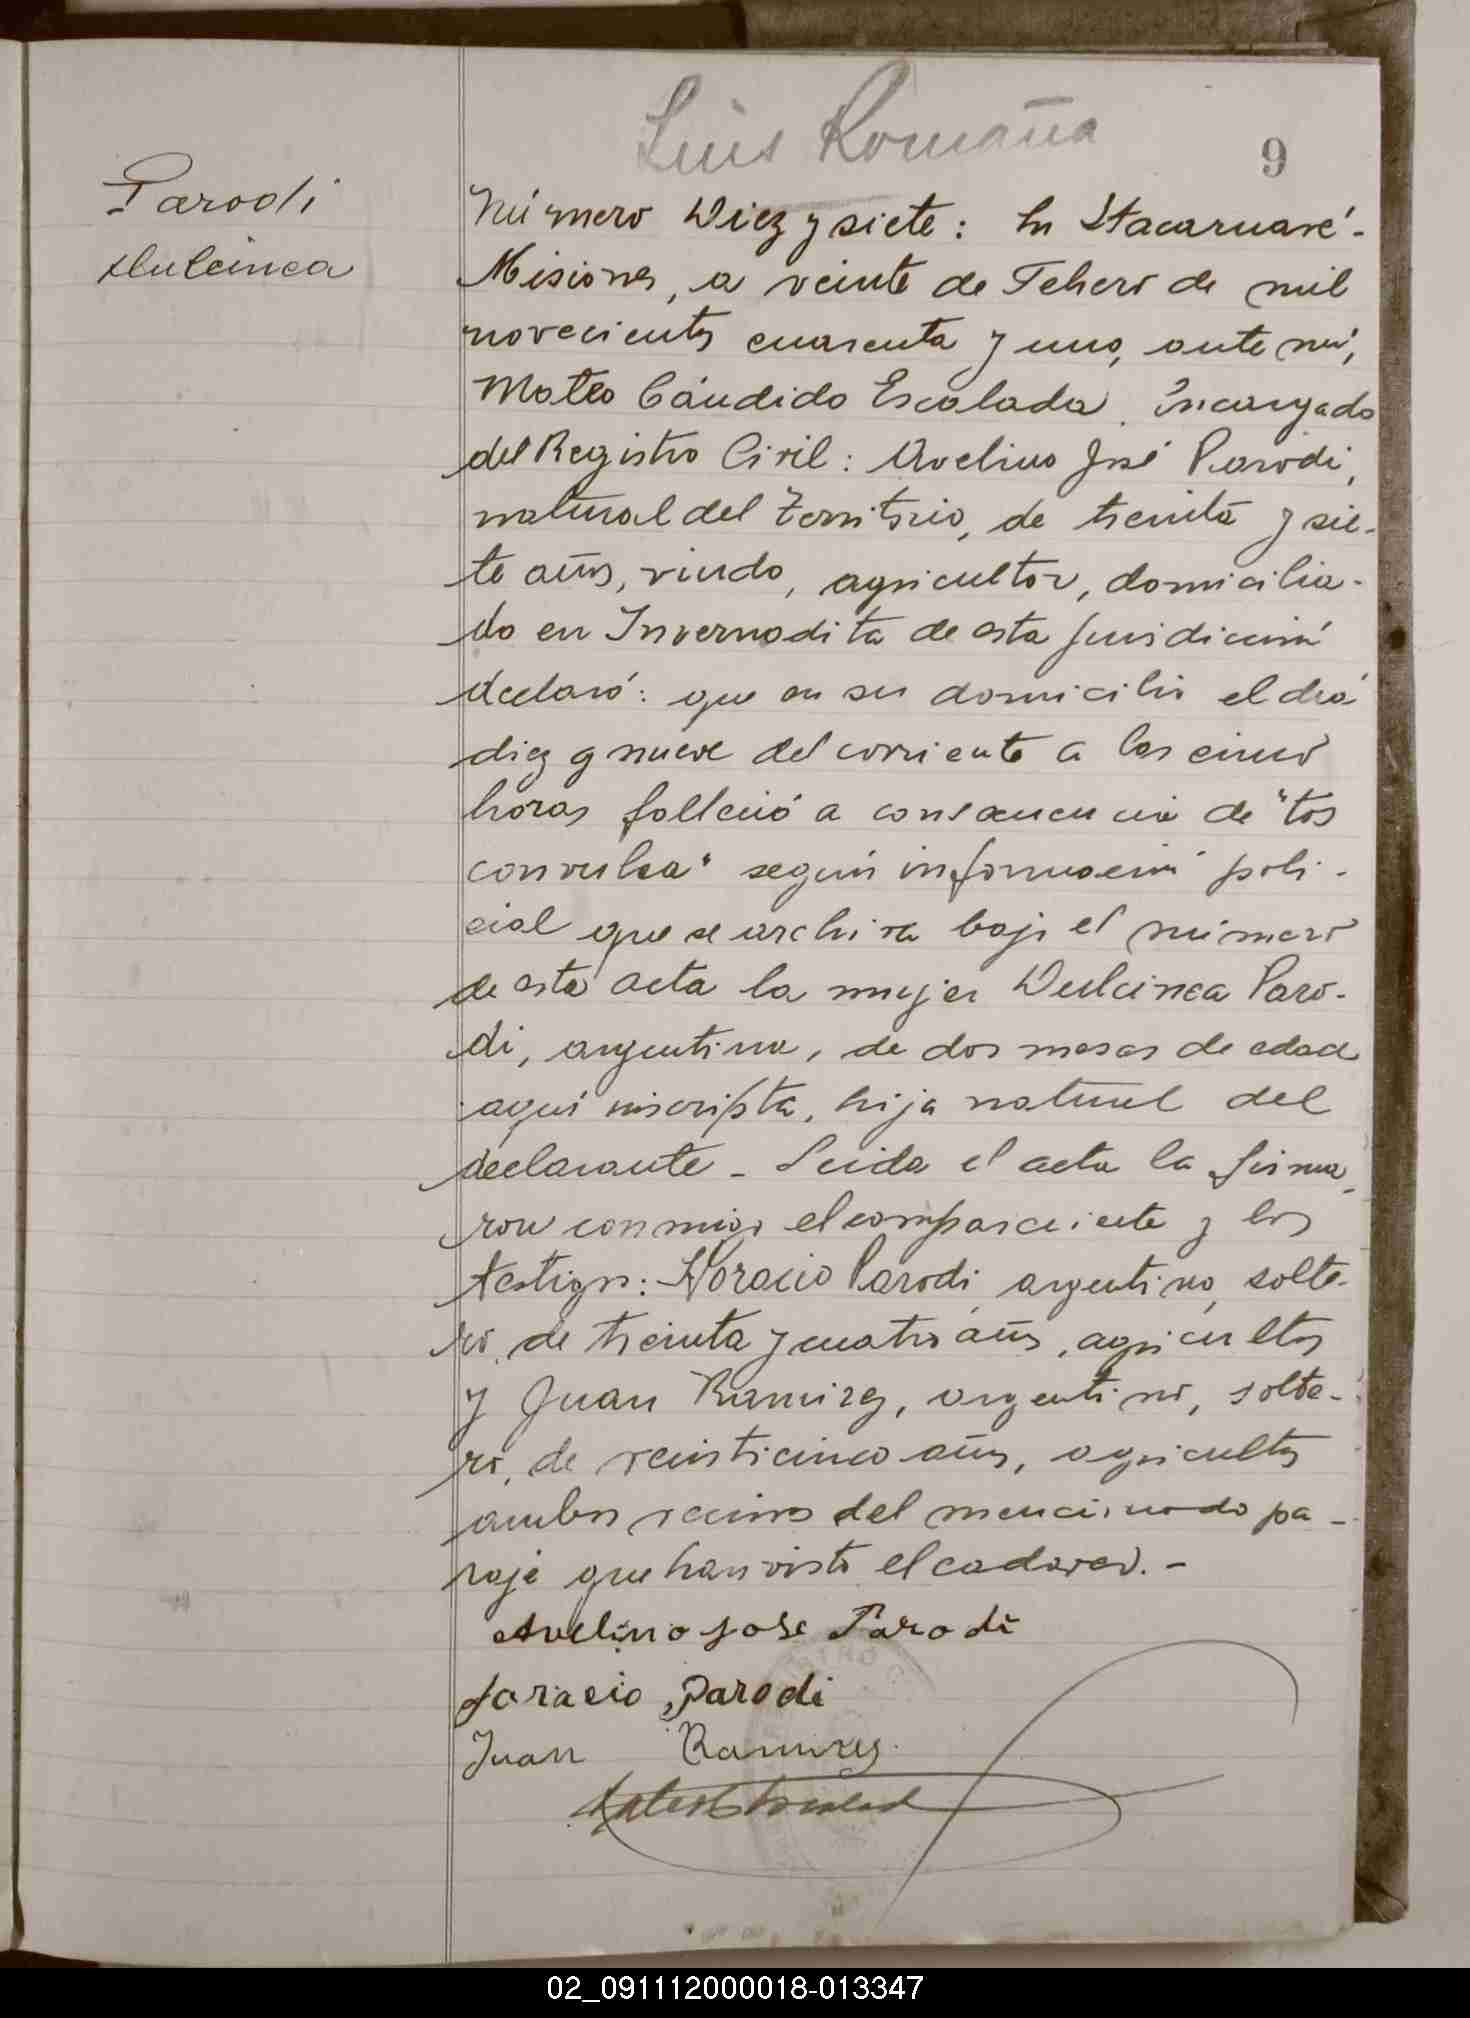 Luis Romaña
9
Parodi
Dulcinea
Número Diez y siete: En Itacaruaré-
Misiones, a veinte de Febrero de mil
novecientos cuarenta y uno, ante mí,
Mateo Cándido Escalada, Encargado
del Registro Civil: Avelino José Parodi,
natural del Territorio, de treinta y sie-
te años, viudo, agricultor, domicilia-
do en Invernadita de esta jurisdicción
declaró: que en su domicilio el día
diez y nueve del corriente a las cinco
horas falleció a consecuencia de "tos
convulsa" según información poli-
cial que se archiva bajo el número
de esta acta la mujer Dulcinea Paro-
di, argentina, de dos meses de edad
aquí inscripta, hija natural del
declarante - Leida el acta la firma-
ron conmigo el compareciente y los
testigos: Horacio Parodi argentino, solte-
ro, de treinta y cuatro años, agricultor
y Juan Ramirez, argentino, solte-
ro, de veinticinco años, agricultor
ambos vecinos del mencionado pa-
raje que han visto el cadaver. -
Avelino Jose Parodi
Joracio Parodi
Juan Ramirez
02_091112000018-013347